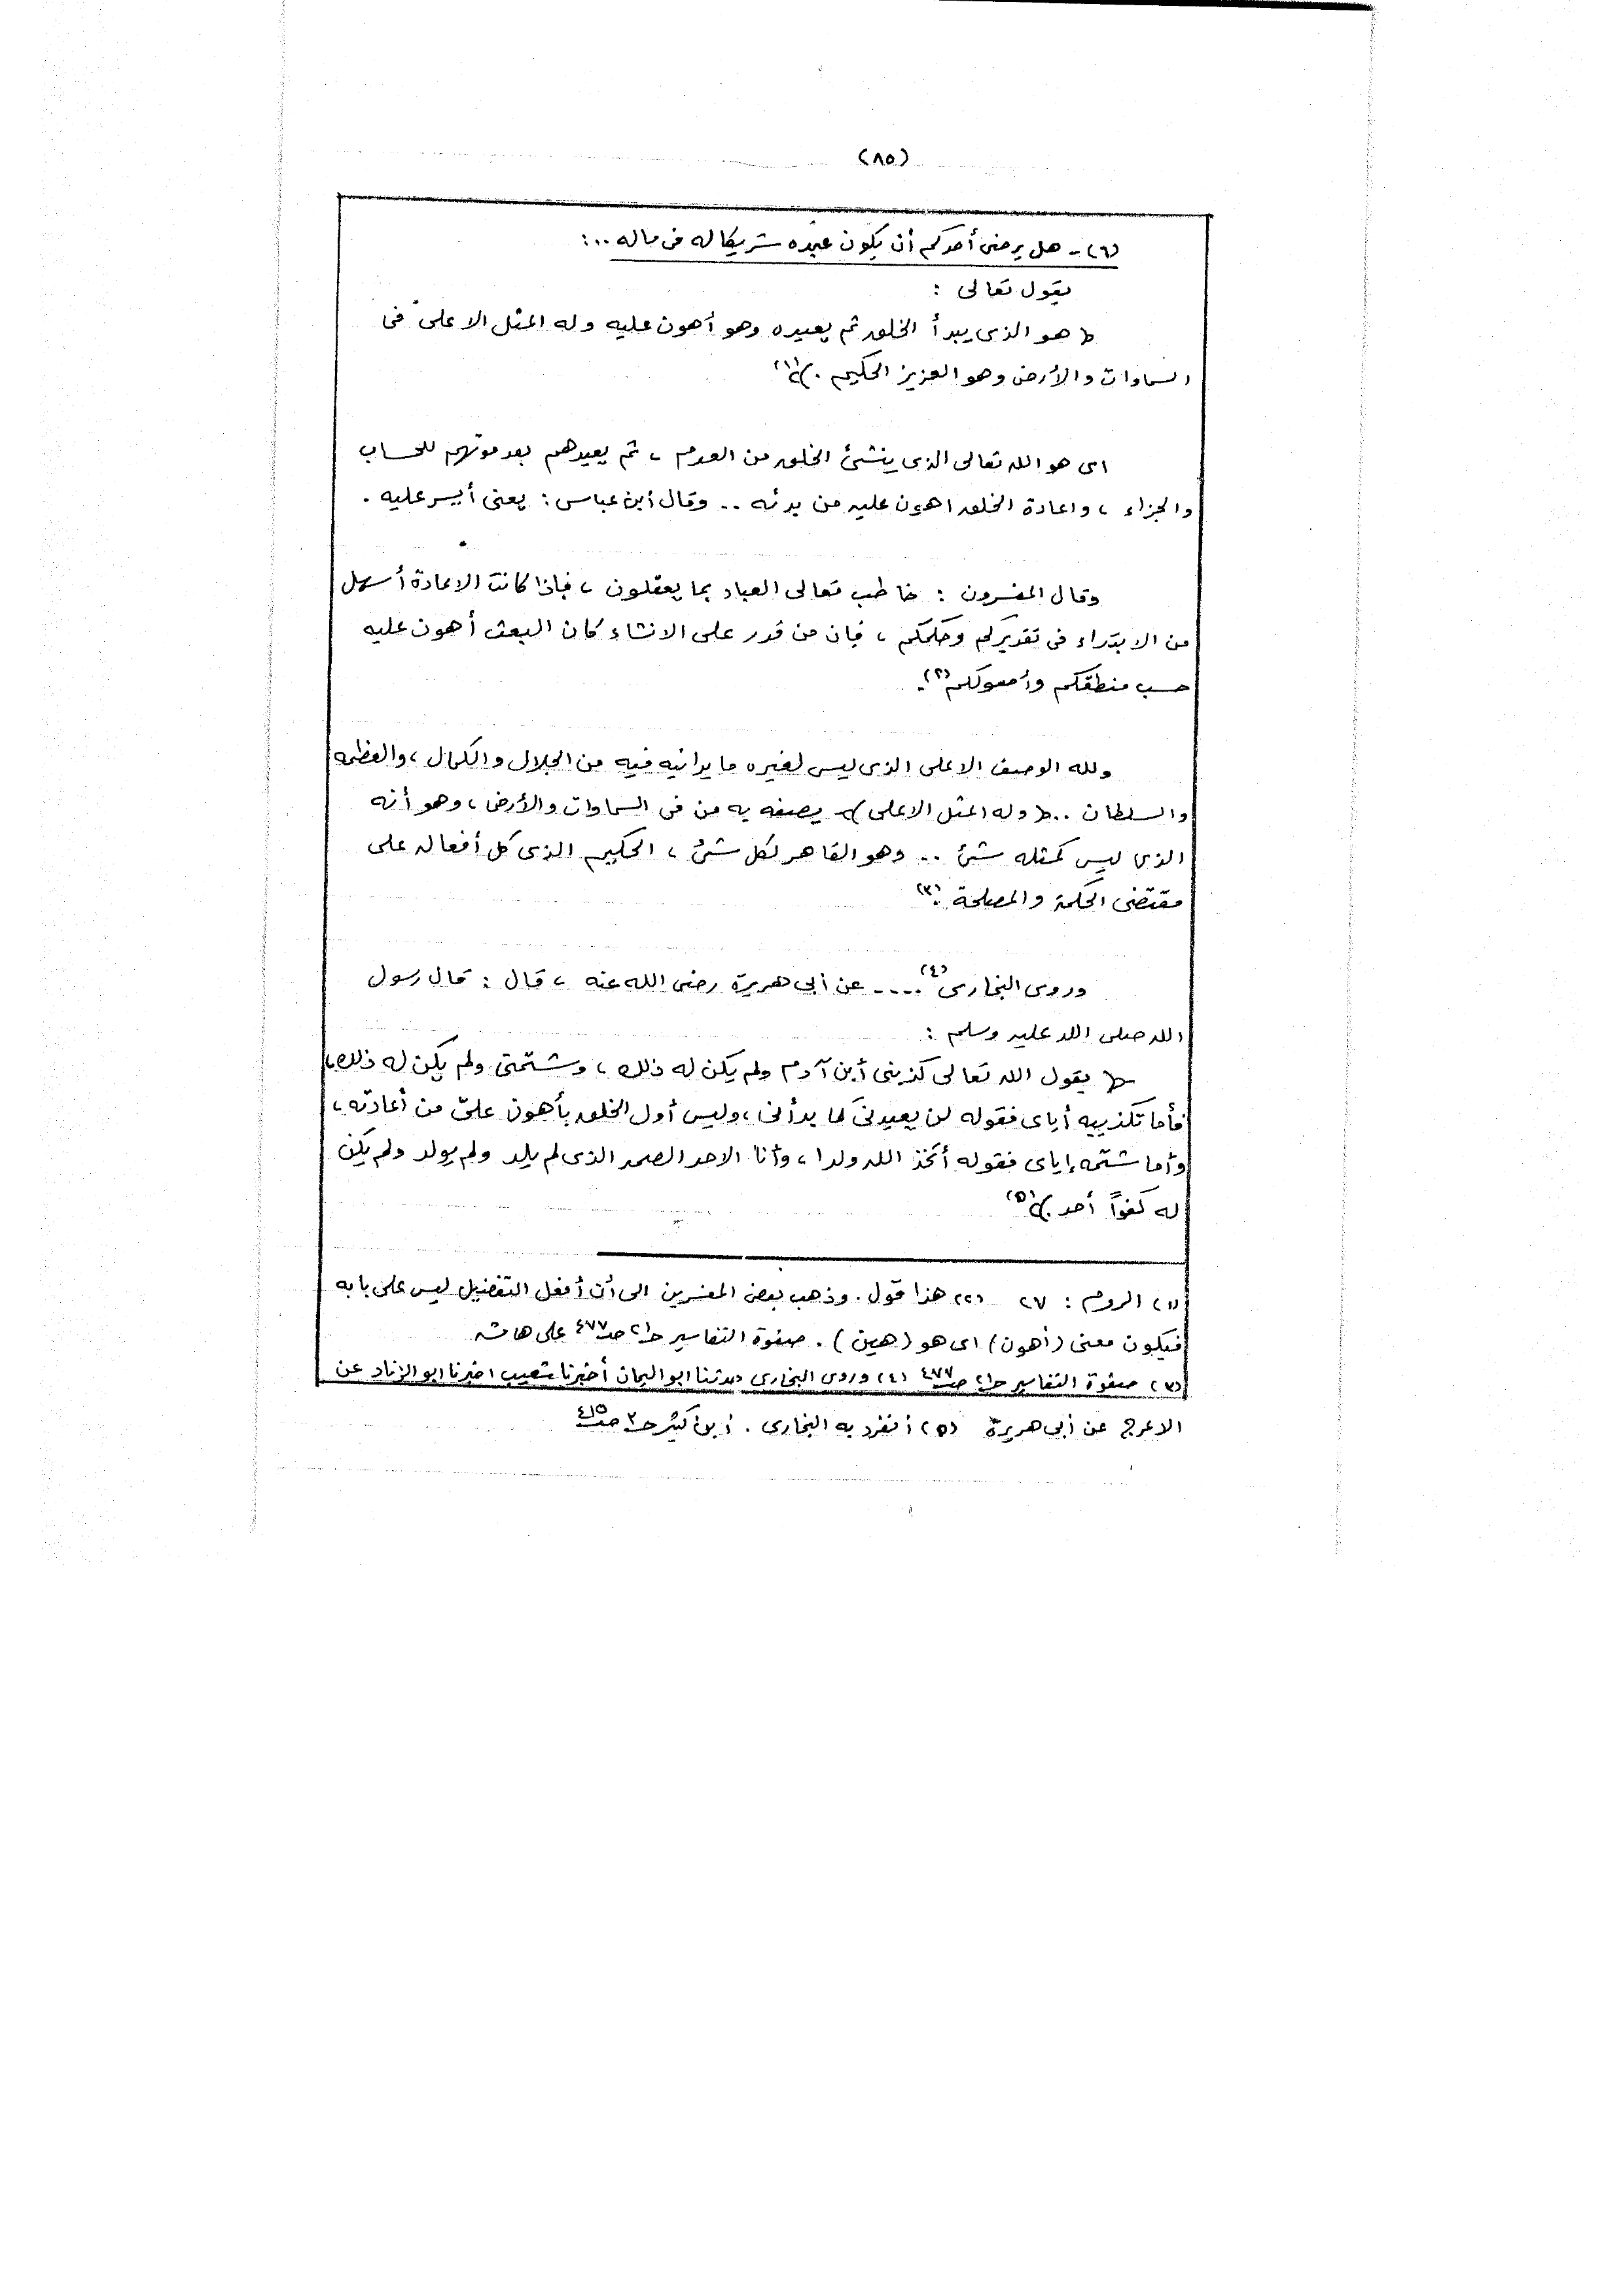 (٨٥)
(٦) - هل يرضى أحدكم أن يكون عبده شريكا له فى ماله ..:
يقول تعالى :
﴿ هو الذى يبدأ الخلق ثم يعيده وهو أهون عليه وله المثل الاعلى فى
السماوات والأرض وهو العزيز الحكيم . ﴾(١)
اى هو الله تعالى الذى ينشئ الخلق من العدم ، ثم يعيدهم بعد موتهم للحساب
والجزاء ، واعادة الخلق اهون عليه من بدئه .. وقال أبن عباس : يعنى أيسر عليه .
وقال المفسرون : خاطب تعالى العباد بما يعقلون ، فإذا كانت الاعادة أسهل
من الابتداء فى تقديركم وحكمكم ، فإن من قدر على الانشاء كان البعث أهون عليه
حسب منطقكم وأصولكم (٢).
ولله الوصف الاعلى الذى ليس لغيره ما يدانيه فيه من الجلال والكمال ، والعظمه
والسلطان .. ﴿ وله المثل الاعلى ﴾ يصفه به من فى السماوات والأرض ، وهو أنه
الذى ليس كمثله شئ .. وهو القاهر لكل شئ ، الحكيم الذى كل أفعاله على
مقتضى الحكمة والمصلحة .(٣)
وروى البخارى (٤) .... عن أبى هريرة رضى الله عنه ، قال : قال رسول
الله صلى الله عليه وسلم :
﴿ يقول الله تعالى كذبنى أبن آدم ولم يكن له ذلك ، وشتمنى ولم يكن له ذلك ،
فأما تكذيبه أياى فقوله لن يعيدنى كما بدأنى ، وليس أول الخلق بأهون علىّ من أعادته ،
وأما شتمه إياى فقوله أتخذ الله ولدا ، وأنا الاحد الصمد الذى لم يلد ولم يولد ولم يكن
له كفواً أحد . ﴾(٥)
(١) الروم : ٢٧ (٢) هذا قول . وذهب بعض المفسرين الى أن أفعل التفضيل ليس على بابه
فيكون معنى (أهون) اى هو (هين) . صفوة التفاسير حـ٢ صـ٤٧٧ على هامشه
(٣) صفوة التفاسير حـ٢ صـ٤٧٧ (٤) وروى البخارى حدثنا ابو اليمان أخبرنا شعيب اخبرنا ابو الزناد عن
الاعرج عن أبى هريرة (٥) أنفرد به البخارى . أبن كثير حـ٣ صـ٤١٥